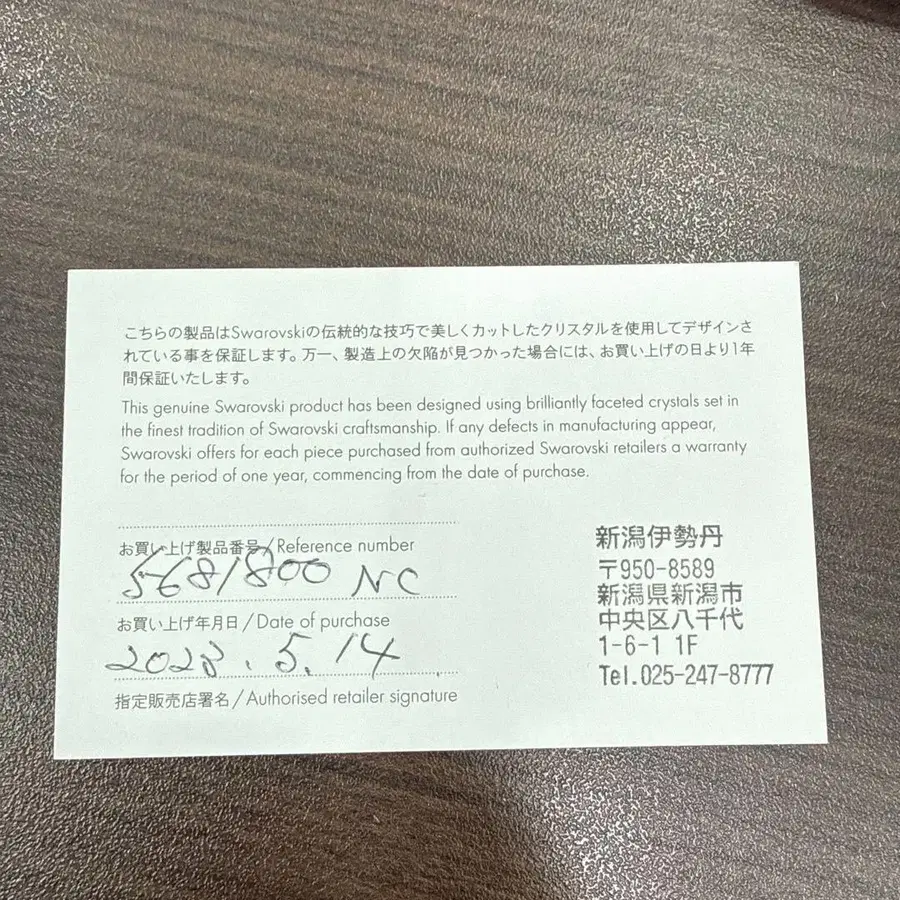 こちらの製品はSwarovskiの伝統的な技巧で美しくカットしたクリスタルを使用してデザインさ
れている事を保証します。万一、製造上の欠陥が見つかった場合には、お買い上げの日より1年
間保証いたします。
This genuine Swarovski product has been designed using brilliantly faceted crystals set in
the finest tradition of Swarovski craftsmanship. If any defects in manufacturing appear,
Swarovski offers for each piece purchased from authorized Swarovski retailers a warranty
for the period of one year, commencing from the date of purchase.
お買い上げ製品番号/Reference number
5681800 NC
お買い上げ年月日/Date of purchase
2023.5.14
指定販売店署名/Authorised retailer signature
新潟伊勢丹
〒950-8589
新潟県新潟市
中央区八千代
1-6-1 1F
Tel.025-247-8777